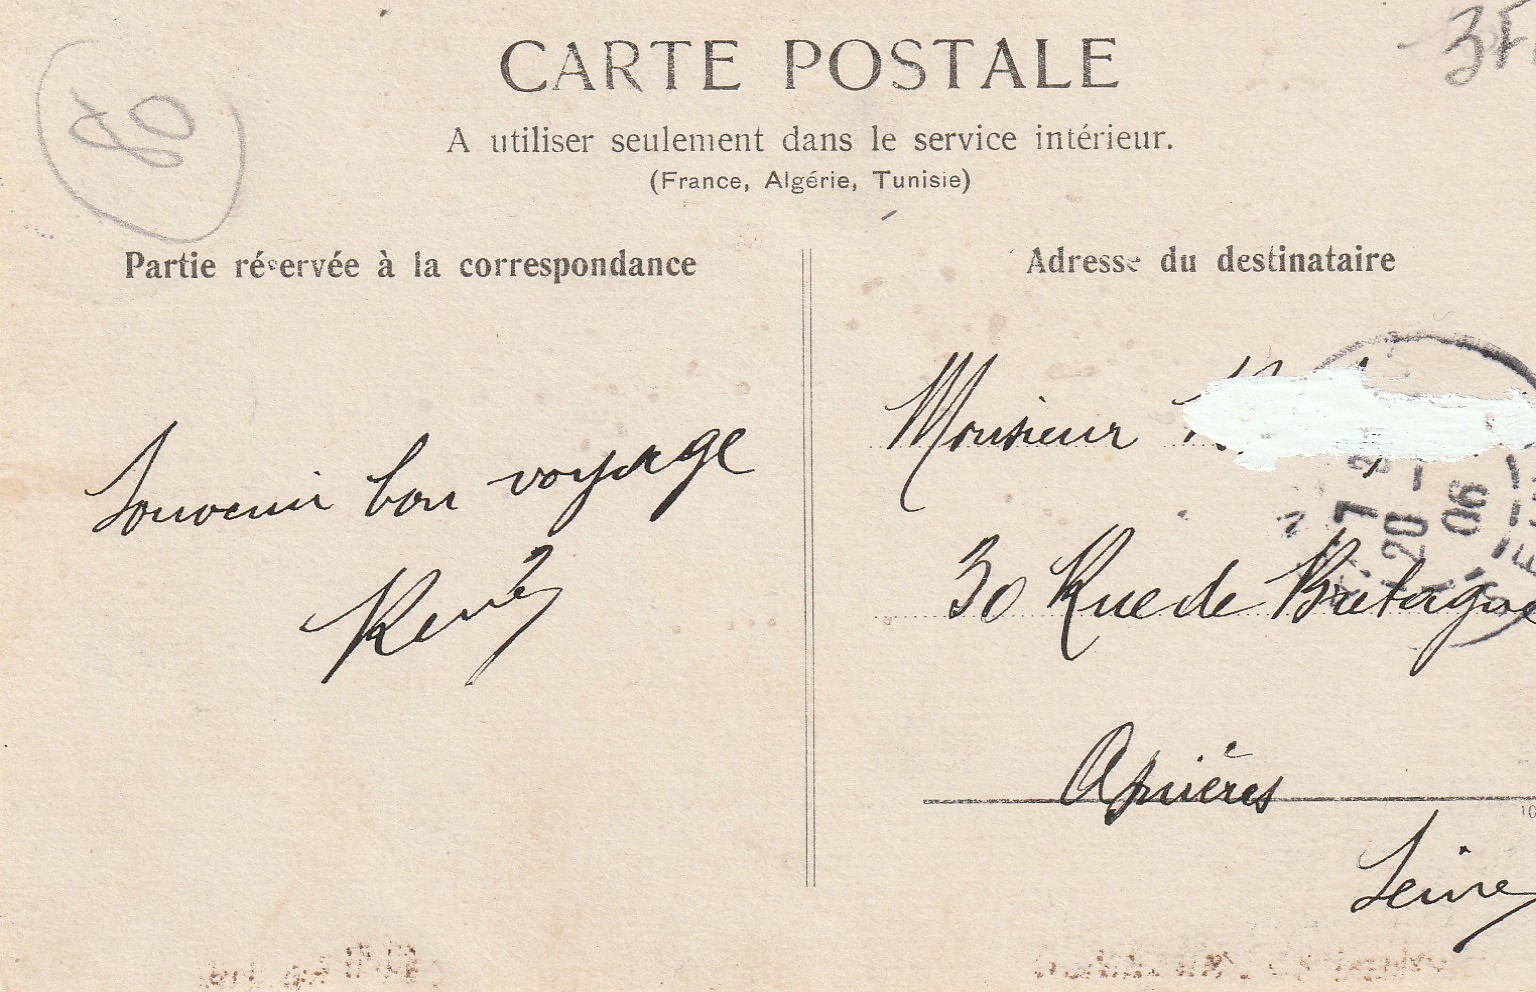 CARTE POSTALE
A utiliser seulement dans le service intérieur.
(France, Algérie, Tunisie)
80
Partie réservée à la correspondance
Souvenir bon voyage
René
Adresse du destinataire
Monsieur
7
20
06
30 Rue de Bretagne
Asnières
Seine